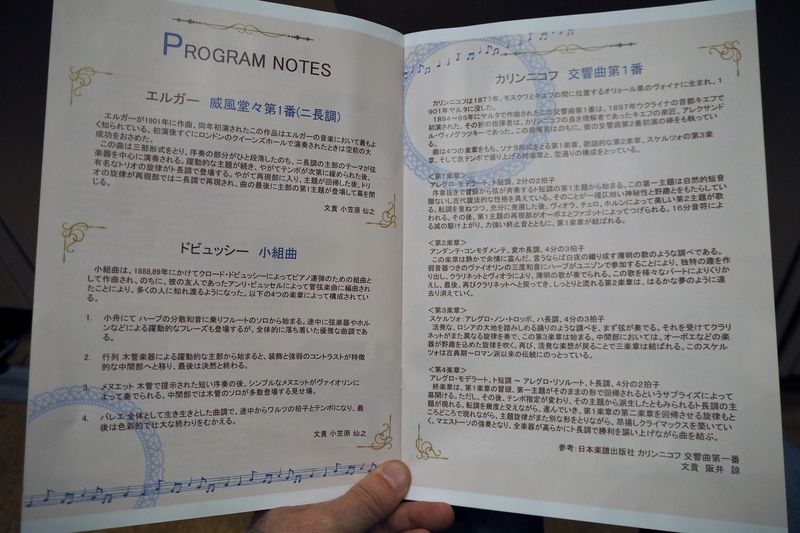 PROGRAM NOTES
エルガー 威風堂々第1番(ニ長調)
エルガーが1901年に作曲、同年初演されたこの作品はエルガーの音楽において最もよ
く知られている。初演後すぐにロンドンのクイーンズホールで演奏されたときは空前の大
成功をおさめた。
この曲は三部形式をとり、序奏の部分がひと段落したのち、ニ長調の主部のテーマが弦
楽器を中心に演奏される。躍動的な主題が続き、やがてテンポが次第に緩められた後、
有名なトリオの旋律がト長調で登場する。やがて再現部に入り、主題が回帰した後、トリ
オの旋律が再現部ではニ長調で再現され、曲の最後に主部の第1主題が登場して幕を閉
じる。
文責 小笠原 仙之
ドビュッシー 小組曲
小組曲は、1888,89年にかけてクロード・ドビュッシーによってピアノ連弾のための組曲と
して作曲され、のちに、彼の友人であったアンリ・ビュッセルによって管弦楽曲に編曲され
たことにより、多くの人に知れ渡るようになった。以下の4つの楽章によって構成されてい
る。
1. 小舟にて ハープの分散和音に乗りフルートのソロから始まる。途中に弦楽器やホル
ンなどによる躍動的なフレーズも登場するが、全体的に落ち着いた優雅な曲調であ
る。
2. 行列 木管楽器による躍動的な主部から始まると、装飾と強弱のコントラストが特徴
的な中間部へと移り、最後は決然と終わる。
3. メヌエット 木管で提示された短い序奏の後、シンプルなメヌエットがヴァイオリンに
よって奏でられる。中間部では木管のソロが多数登場する見せ場。
4. バレエ 全体として生き生きとした曲調で、途中からワルツの拍子とテンポになり、最
後は色彩的で壮大な終わりをむかえる。
文責 小笠原 仙之
カリンニコフ 交響曲第1番
カリンニコフは1877年、モスクワとキエフの間に位置するオリョール県のヴォイナに生まれ、1
901年ヤルタに没した。
1894~95年にヤルタで作曲されたこの交響曲第1番は、1897年ウクライナの首都キエフで
初演された。その折の指揮者は、カリンニコフの良き理解者であったキエフの楽匠、アレクサンド
ル・ヴィノグラツキーであった。この指揮者はのちに、彼の交響曲第2番初演の棒をも執ってい
る。
曲は4つの楽章をもち、ソナタ形式をとる第1楽章、歌謡的な第2楽章、スケルツォの第3楽
章、そして急テンポで盛り上げる終楽章と、型通りの構成をとっている。
<第1楽章>
アレグロ・モデラート、ト短調、2分の2拍子
序章抜きで冒頭から弦が斉奏するト短調の第1主題から始まる。この第一主題は自然的短音
階ないし古代旋法的な性格を具えている。そのことが一種仄暗い神秘性と野趣とをもたらしてい
る。転調を重ねつつ、充分に発展した後、ヴィオラ、チェロ、ホルンによって美しい第2主題が歌
われる。その後、第1主題の再現部がオーボエとファゴットによってつげられる。16分音符によ
る減の駆け上がり、力強い終止音とともに、第1楽章が結ばれる。
<第2楽章>
アンダンテ・コンモダメンテ、変ホ長調、4分の3拍子
この楽章は静かで余情に富んだ、言うならば白夜の織り成す薄明の歌のような調べである。
弱音器つきのヴァイオリンの三度和音にハープがユニゾンで参加することにより、独特の趣を作
り出し、クラリネットとヴィオラにより、薄明の歌が奏でられる。この歌を様々なパートによりくりか
えし、最後、再びクラリネットへと戻ってき、しっとりと流れる第2楽章は、はるかな夢のように遠
去り消えていく。
<第3楽章>
スケルツォ:アレグロ・ノン・トロッポ、ハ長調、4分の3拍子
活発な、ロシアの大地を踏みしめる踊りのような調べを、まず弦が奏でる。それを受けてクラリ
ネットがまた異なる旋律を奏で、この第3楽章は始まる。中間部においては、オーボエなどの楽
器が野趣を込めた旋律を吹く。再び、活発な楽想が戻ることで三楽章は結ばれる。このスケル
ツォは古典期~ロマン派以来の伝統にのっとっている。
<第4楽章>
アレグロ・モデラート、ト短調 ~ アレグロ・リソルート、ト長調、4分の2拍子
終楽章は、第1楽章の冒頭、第一主題がそのままの形で回帰されるというサプライズによって
幕開ける。ただし、その後、テンポ指定が変わり、その主題から派生したともみられるト長調の主
題が現れる。転調を幾度と交えながら、進んでいき、第1楽章の第二主題を回帰させる旋律もと
ころどころで現れながら、主題旋律がまた別な形をとりながら、昂揚しクライマックスを築いてい
く。マエストーソの強奏となり、全楽器が高らかにト長調で勝利を謳い上げながら曲を結ぶ。
参考:日本楽譜出版社 カリンニコフ 交響曲第一番
文責 阪井 諒